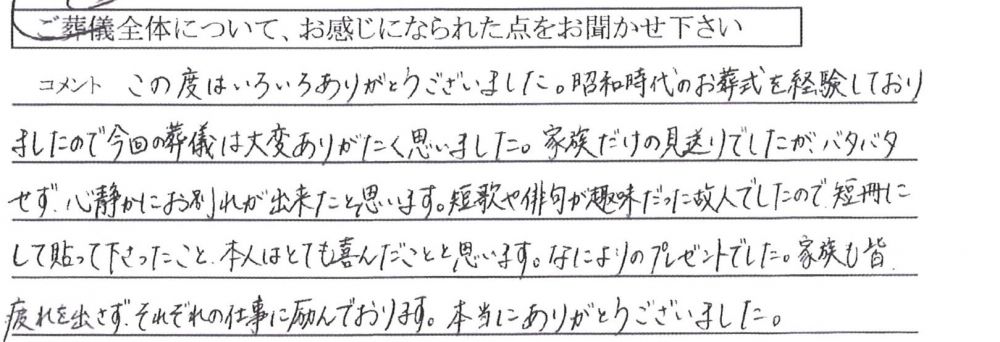 ご葬儀全体について、お感じになられた点をお聞かせ下さい
コメント この度はいろいろありがとうございました。昭和時代のお葬式を経験しており
ましたので今回の葬儀は大変ありがたく思いました。家族だけの見送りでしたが、バタバタ
せず、心静かにお別れが出来たと思います。短歌や俳句が趣味だった故人でしたので短冊に
して貼って下さったこと、本人はとても喜んだことと思います。なによりのプレゼントでした。家族も皆、
疲れを出さず、それぞれの仕事に励んでおります。本当にありがとうございました。